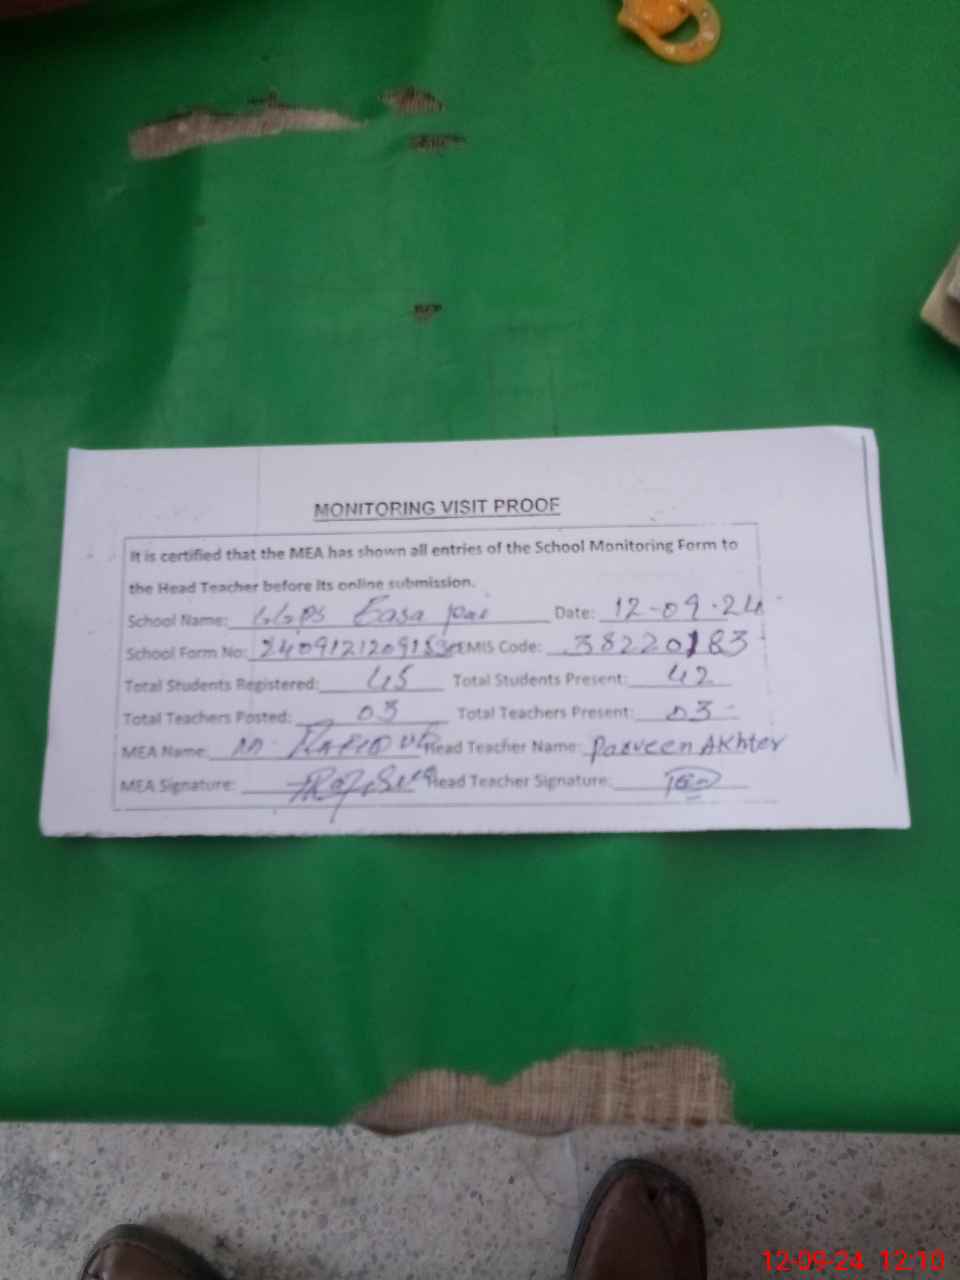 MONITORING VISIT PROOF
It is certified that the MEA has shown all entries of the School Monitoring Form to
the Head Teacher before its online submission.
School Name: GGPS Easa Date: 12-09-24
School Form No: EMIS Code: 38220183
Total Students Registered: 45 Total Students Present: 42
Total Teachers Posted: 03 Total Teachers Present: 03
MEA Name: M. Head Teacher Name: Parveen Akhter
MEA Signature: Head Teacher Signature:
12-09-24 12:10